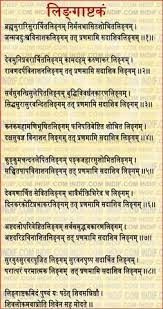 लिङ्गाष्टकं
ब्रह्ममुरारिसुरार्चितलिङ्गम् निर्मलभासितशोभितलिङ्गम् ।
जन्मजदुःखविनाशकलिङ्गम् तत् प्रणमामि सदाशिवलिङ्गम् ॥१॥
देवमुनिप्रवरार्चितलिङ्गम् कामदहम् करुणाकर लिङ्गम् ।
रावणदर्पविनाशनलिङ्गम् तत् प्रणमामि सदाशिव लिङ्गम् ॥२॥
सर्वसुगन्धिसुलेपितलिङ्गम् बुद्धिविवर्धनकारणलिङ्गम् ।
सिद्धसुरासुरवन्दितलिङ्गम् तत् प्रणमामि सदाशिव लिङ्गम् ॥३॥
कनकमहामणिभूषितलिङ्गम् फनिपतिवेष्टित शोभित लिङ्गम् ।
दक्षसुयज्ञ विनाशन लिङ्गम् तत् प्रणमामि सदाशिव लिङ्गम् ॥४॥
कुङ्कुमचन्दनलेपितलिङ्गम् पङ्कजहारसुशोभितलिङ्गम् ।
सञ्चितपापविनाशनलिङ्गम् तत् प्रणमामि सदाशिव लिङ्गम् ॥५॥
देवगणार्चित सेवितलिङ्गम् भावैर्भक्तिभिरेव च लिङ्गम् ।
दिनकरकोटिप्रभाकरलिङ्गम् तत् प्रणमामि सदाशिव लिङ्गम् ॥६॥
अष्टदलोपरिवेष्टितलिङ्गम् सर्वसमुद्भवकारणलिङ्गम् ।
अष्टदरिद्रविनाशितलिङ्गम् तत् प्रणमामि सदाशिव लिङ्गम् ॥७॥
सुरगुरुसुरवरपूजित लिङ्गम् सुरवनपुष्प सदार्चित लिङ्गम् ।
परात्परं परमात्मक लिङ्गम् तत् प्रणमामि सदाशिव लिङ्गम् ॥८॥
लिङ्गाष्टकमिदं पुण्यं यः पठेत् शिवसन्निधौ ।
शिवलोकमवाप्नोति शिवेन सह मोदते ॥